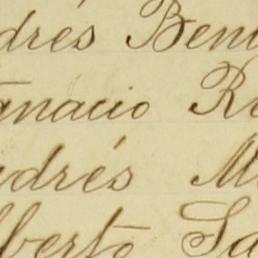 drés Ben
gnacio R
ndrés M
lberto Sa